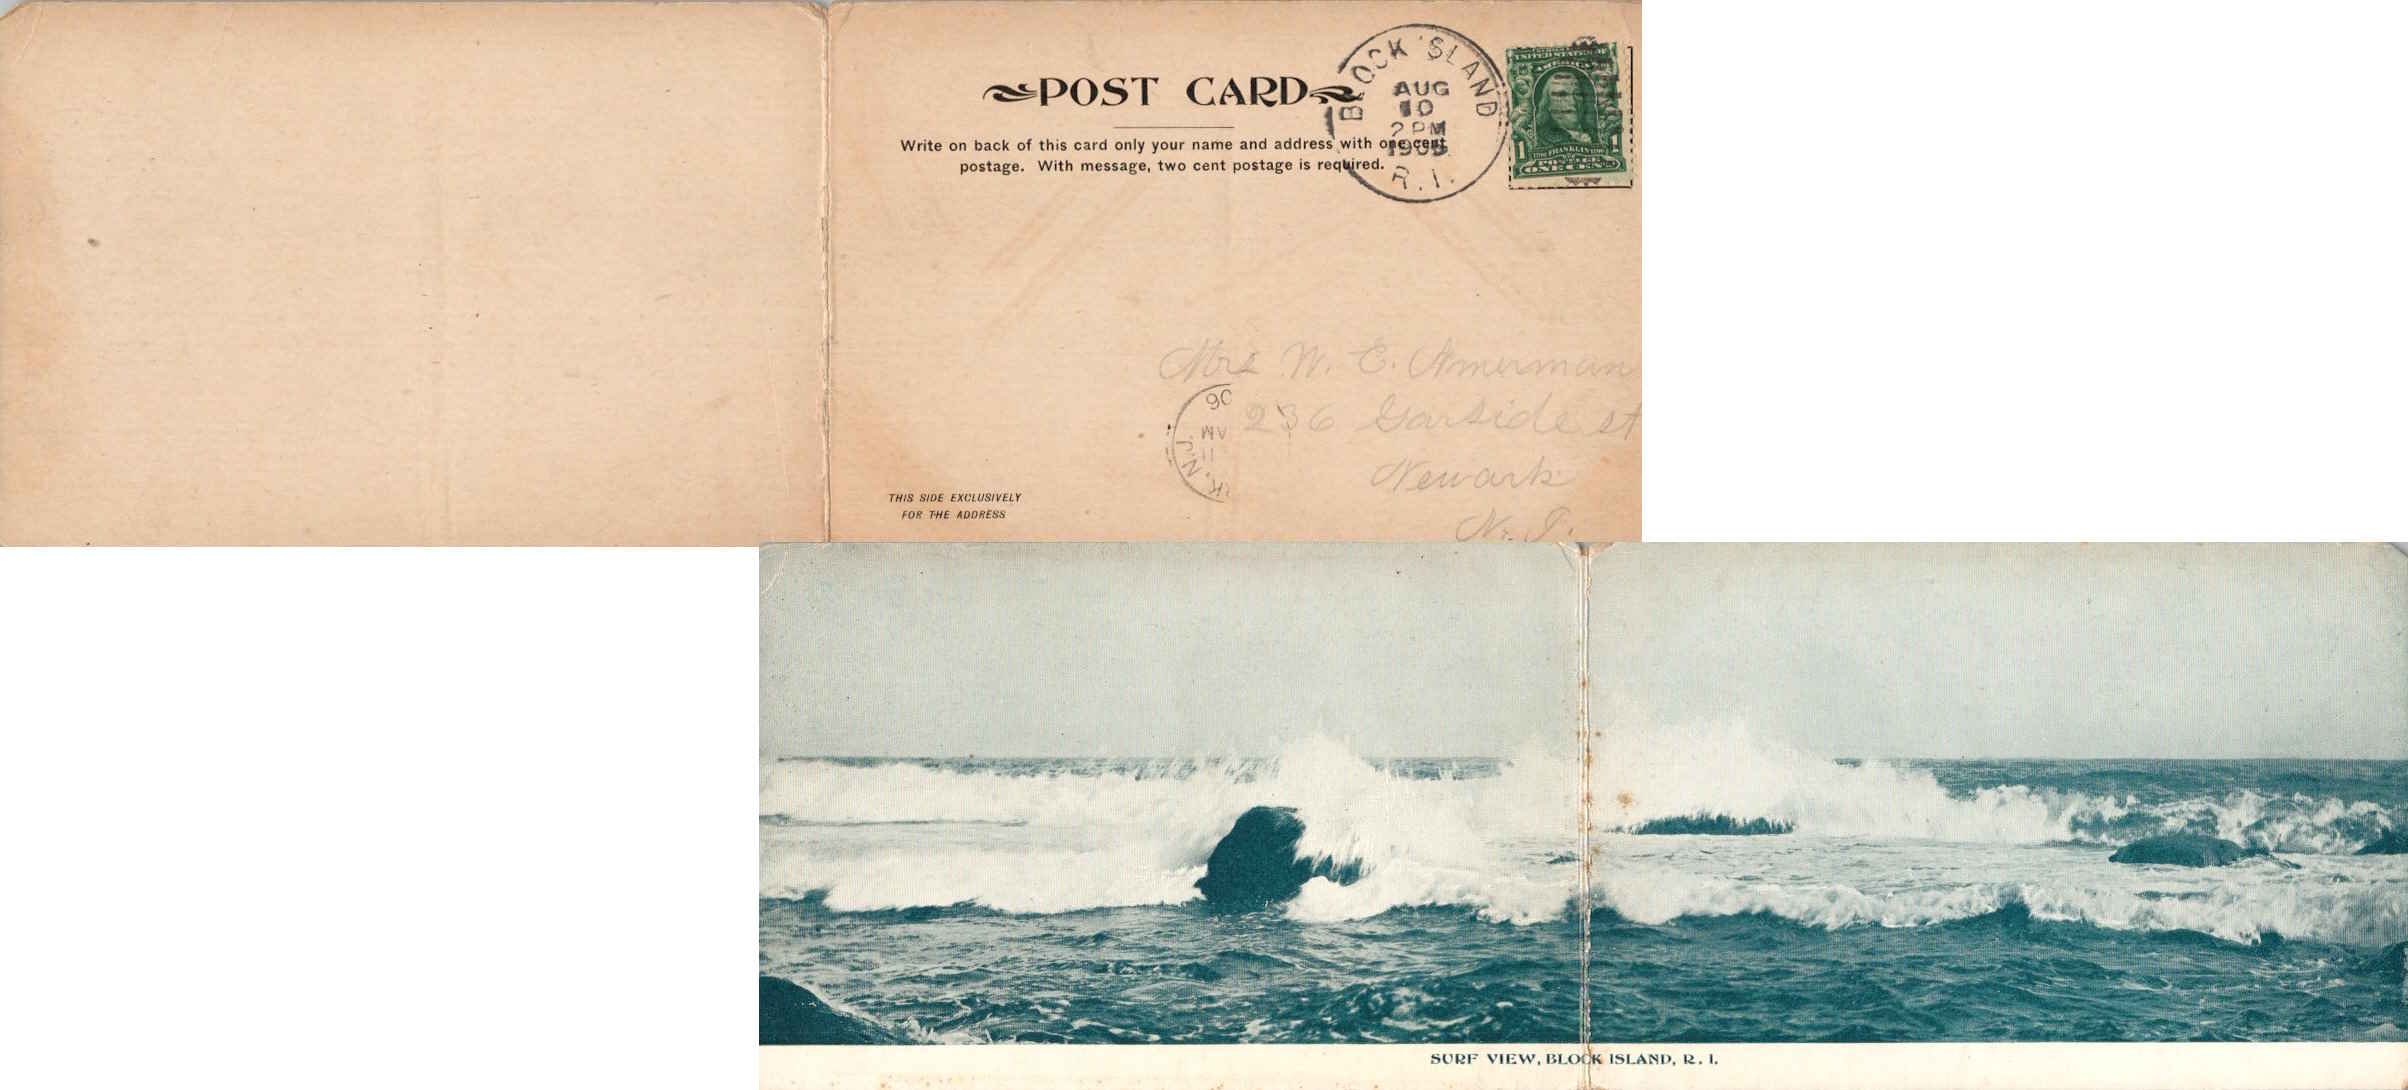 POST CARD
Write on back of this card only your name and address with one cent
postage. With message, two cent postage is required.
BLOCK ISLAND
AUG
10
2 PM
R.I.
UNITED STATES OF
AMERICA
1 FRANKLIN 1
POSTAGE
ONE CENT
Mrs W. E. Amerman
236 Garside st
Newark
N. J.
06
AM
11
K. N.J.
THIS SIDE EXCLUSIVELY
FOR THE ADDRESS
SURF VIEW, BLOCK ISLAND, R. I.